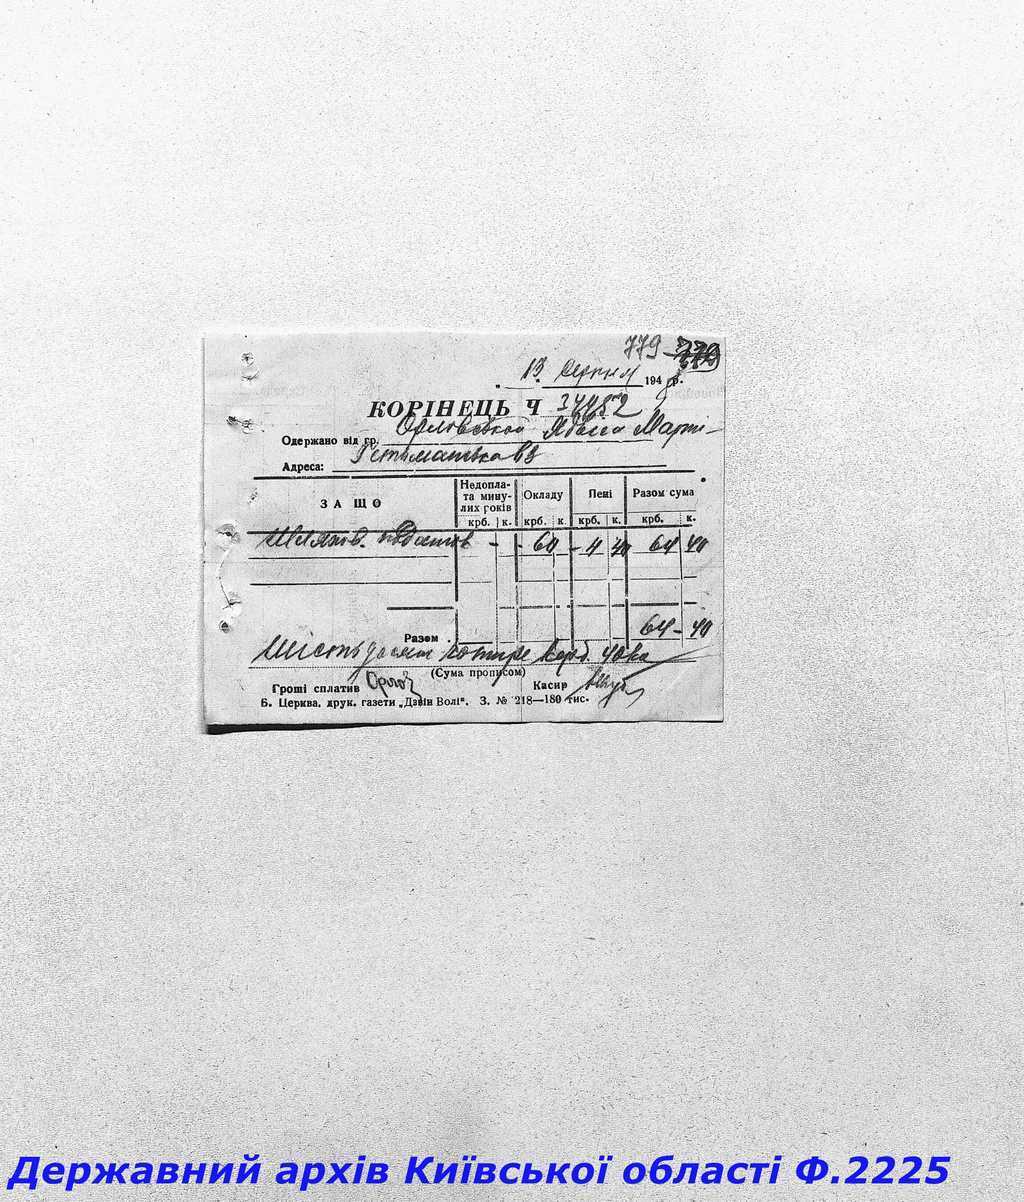 779
13 серпня 194 р.
КОРІНЕЦЬ Ч 34482
Одержано від гр. Орловської
Адреса: Гетьманська
ЗА ЩО Недопла-та мину-лих років Окладу Пені Разом сума
крб. к. крб. к. крб. к. крб. к.
Шляхов. податок - - 60 - 4 40 64 40
Разом . 64 - 40
Шістьдесят чотири карб. 40 ко
(Сума прописом)
Гроші сплатив Касир
Б. Церква, друк. газети „Дзвін Волі". З. № 218—180 тис.
Державний архів Київської області Ф.2225